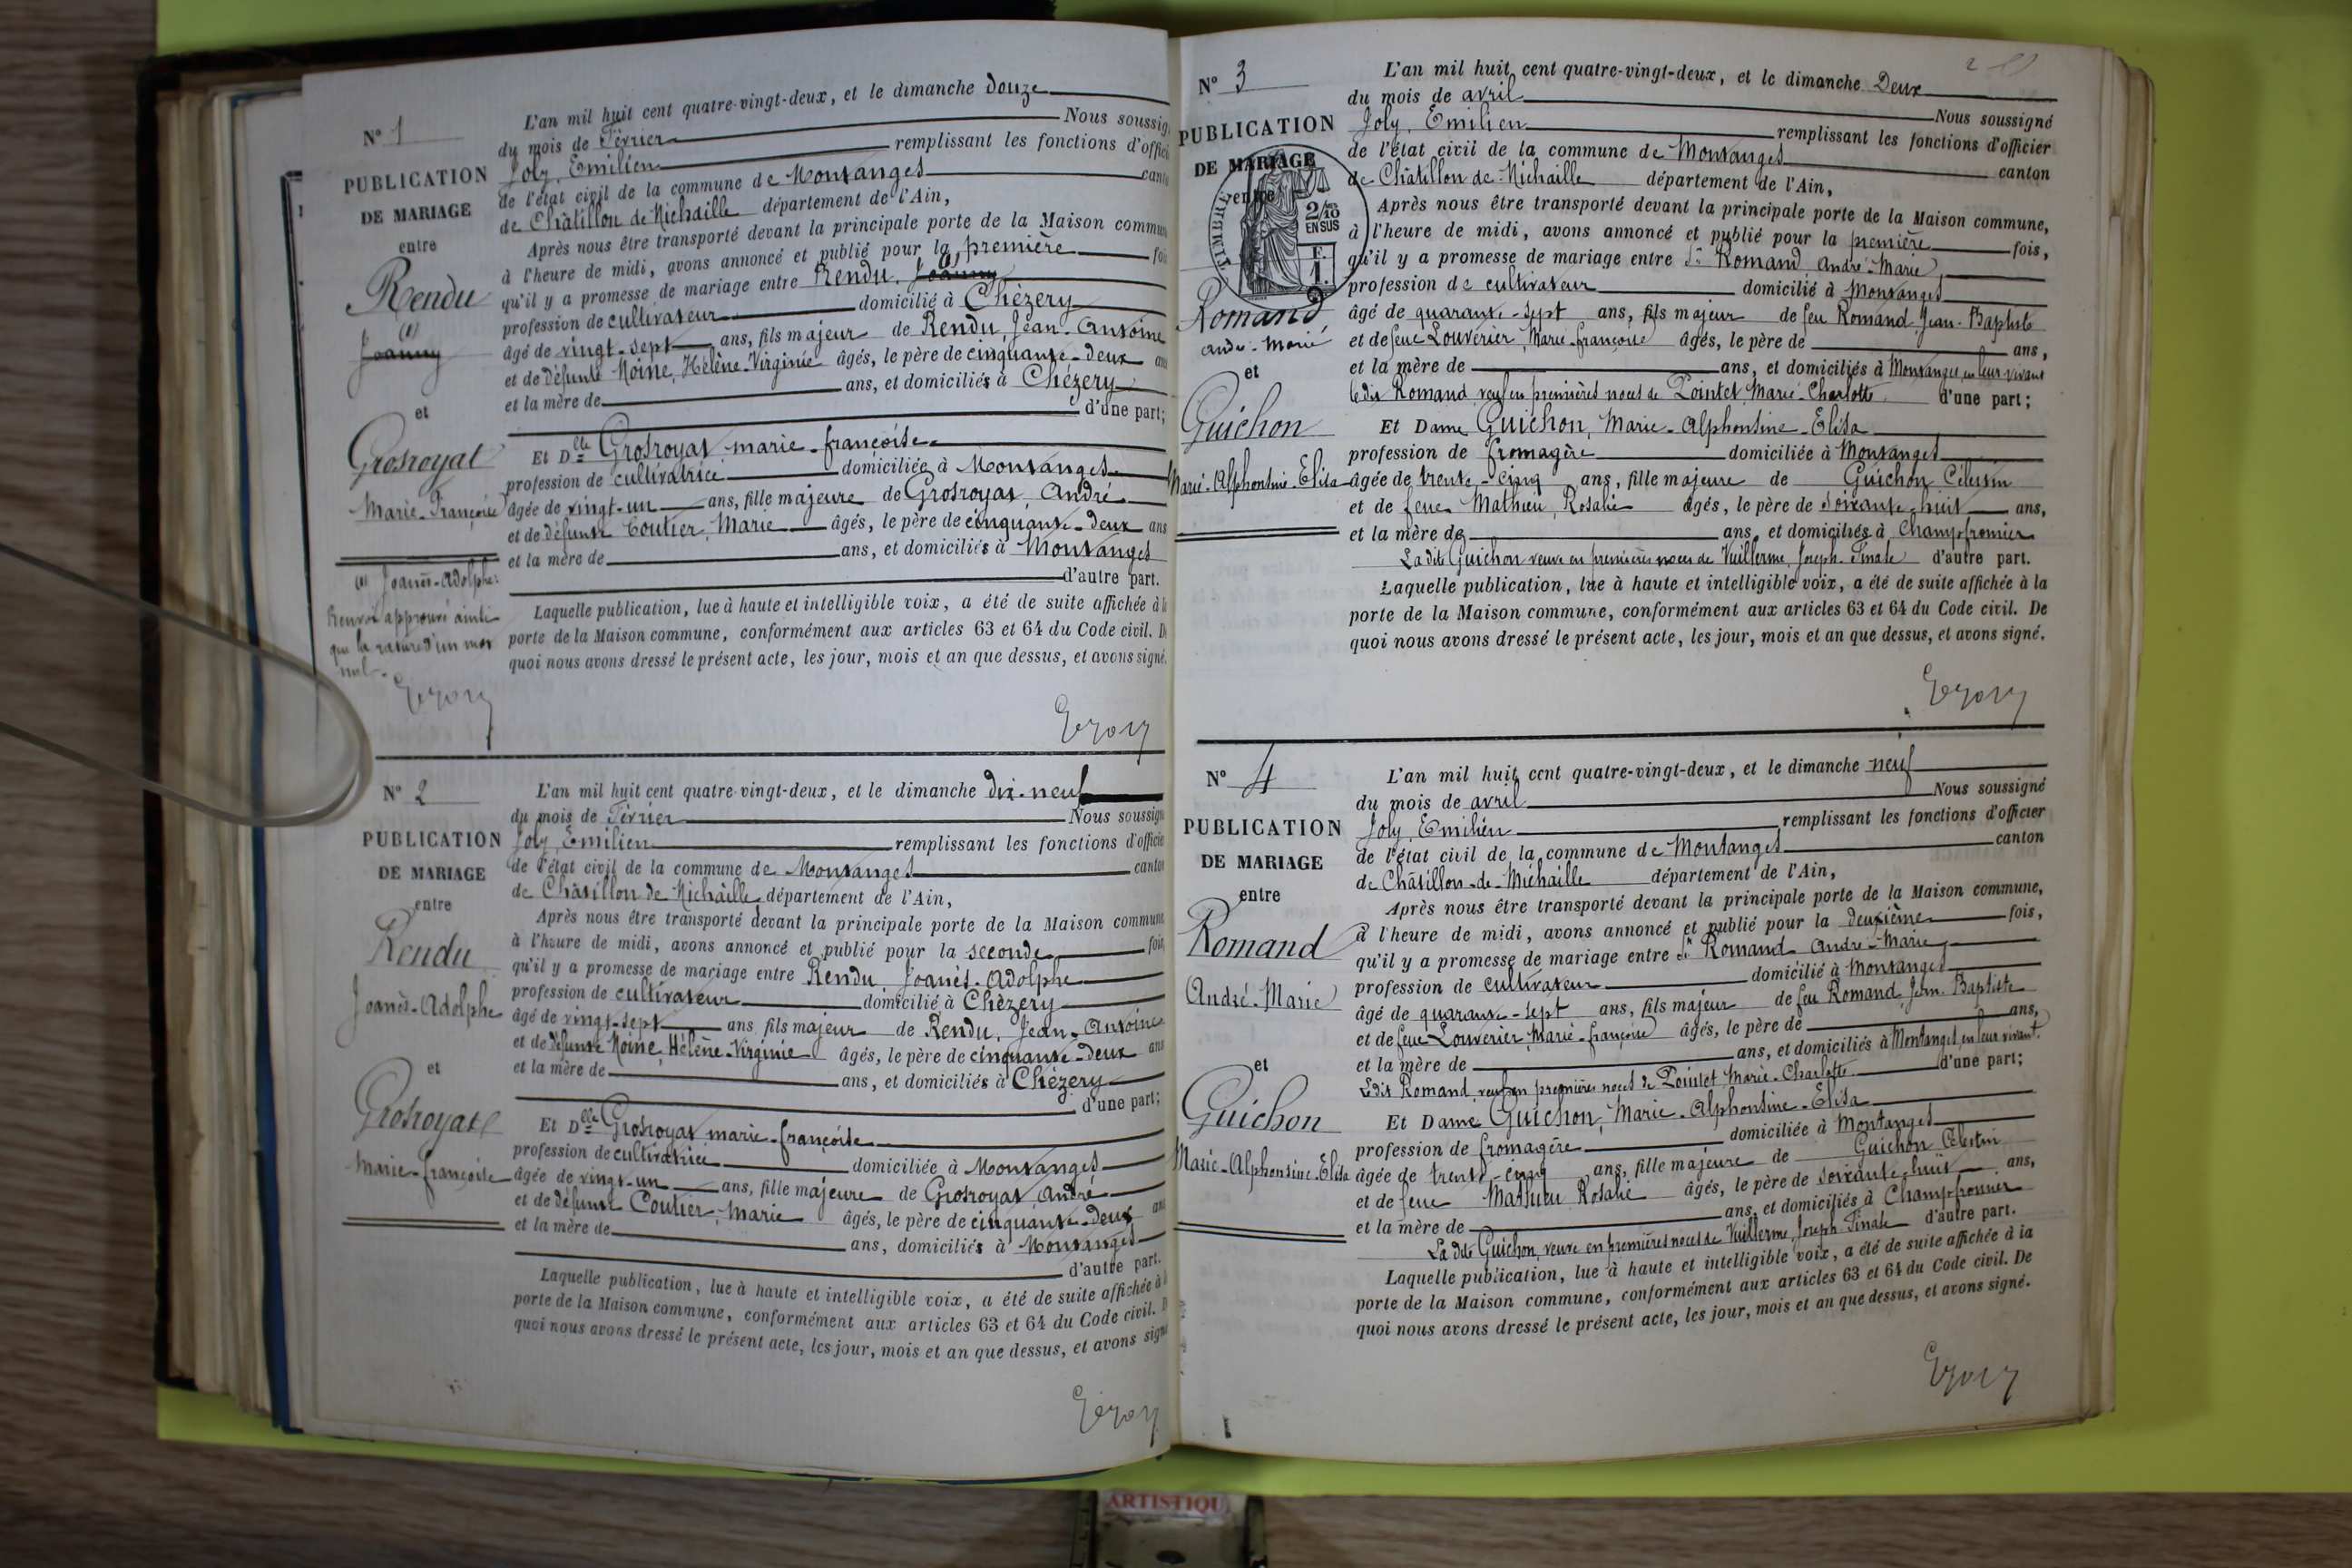 N° 1
PUBLICATION
DE MARIAGE
entre
Rendu
(1)
Joanny
et
Grosroyat
Marie-Françoise
(1) Joanès-Adolphe.
Renvoi approuvé ainsi
que la rature d'un mot
nul.
L'an mil huit cent quatre-vingt-deux, et le dimanche douze
du mois de Février Nous soussig
Joly, Emilien remplissant les fonctions d'offici
de l'état civil de la commune de Montanges canto
de Châtillon de Michaille département de l'Ain,
Après nous être transporté devant la principale porte de la Maison commun
à l'heure de midi, avons annoncé et publié pour la première foi
qu'il y a promesse de mariage entre Rendu, Joanny (1)
profession de cultivateur domicilié à Chézery
âgé de vingt-sept ans, fils majeur de Rendu, Jean-Antoine
et de défunte Moine, Hélène-Virginie âgés, le père de cinquante-deux ans
et la mère de ans, et domiciliés à Chézery
d'une part;
Et Dlle Grosroyat marie-françoise
profession de cultivatrice domiciliée à Montanges
âgée de vingt-un ans, fille majeure de Grosroyat André
et de défunte Coutier, Marie âgés, le père de cinquante-deux ans
et la mère de ans, et domiciliés à Montanges
d'autre part.
Laquelle publication, lue à haute et intelligible voix, a été de suite affichée à la
porte de la Maison commune, conformément aux articles 63 et 64 du Code civil. D
quoi nous avons dressé le présent acte, les jour, mois et an que dessus, et avons signé.
N° 2
PUBLICATION
DE MARIAGE
entre
Rendu
Joanès-Adolphe
et
Grosroyat
Marie-françoise
L'an mil huit cent quatre-vingt-deux, et le dimanche dix-neuf
du mois de Février Nous soussign
Joly, Emilien remplissant les fonctions d'officie
de l'état civil de la commune de Montanges canton
de Châtillon de Michaille, département de l'Ain,
Après nous être transporté devant la principale porte de la Maison commune
à l'heure de midi, avons annoncé et publié pour la seconde fois
qu'il y a promesse de mariage entre Rendu, Joanès-Adolphe
profession de cultivateur domicilié à Chézery
âgé de vingt-sept ans fils majeur de Rendu, Jean-Antoine
et de défunte Moine, Hélène-Virginie âgés, le père de cinquante-deux ans
et la mère de ans, et domiciliés à Chézery
d'une part;
Et Dlle Grosroyat marie-françoise
profession de cultivatrice domiciliée à Montanges
âgée de vingt-un ans, fille majeure de Grosroyat André
et de défunte Coutier, Marie âgés, le père de cinquante-deux ans
et la mère de ans, domiciliés à Montanges
d'autre part.
Laquelle publication, lue à haute et intelligible voix, a été de suite affichée à l
porte de la Maison commune, conformément aux articles 63 et 64 du Code civil. D
quoi nous avons dressé le présent acte, les jour, mois et an que dessus, et avons signé
N° 3
PUBLICATION
DE MARIAGE
entre
TIMBRE
2/10
EN SUS
F.
1.
Romand
André-Marie
et
Guichon
Marie-Alphonsine-Elisa
L'an mil huit cent quatre-vingt-deux, et le dimanche Deux
du mois de avril Nous soussigné
Joly, Emilien remplissant les fonctions d'officier
de l'état civil de la commune de Montanges canton
de Châtillon de Michaille département de l'Ain,
Après nous être transporté devant la principale porte de la Maison commune,
à l'heure de midi, avons annoncé et publié pour la première fois,
qu'il y a promesse de mariage entre Sr Romand André-Marie
profession de cultivateur domicilié à Montanges
âgé de quarante-sept ans, fils majeur de feu Romand Jean-Baptiste
et de feue Louverier, Marie-françoise âgés, le père de ans,
et la mère de ans, et domiciliés à Montanges en leur vivant
ledit Romand veuf en premières noces de Pointet Marie-Charlotte d'une part;
Et Dame Guichon, Marie-Alphonsine-Elisa
profession de fromagère domiciliée à Montanges
âgée de trente-cinq ans, fille majeure de Guichon Célestin
et de feue Mathieu, Rosalie âgés, le père de soixante-huit ans,
et la mère de ans, et domiciliés à Champfromier
La dite Guichon veuve en premières noces de Vuillerme, Joseph-Finale d'autre part.
Laquelle publication, lue à haute et intelligible voix, a été de suite affichée à la
porte de la Maison commune, conformément aux articles 63 et 64 du Code civil. De
quoi nous avons dressé le présent acte, les jour, mois et an que dessus, et avons signé.
N° 4
PUBLICATION
DE MARIAGE
entre
Romand
André-Marie
et
Guichon
Marie-Alphonsine-Elisa
L'an mil huit cent quatre-vingt-deux, et le dimanche neuf
du mois de avril Nous soussigné
Joly, Emilien remplissant les fonctions d'officier
de l'état civil de la commune de Montanges canton
de Châtillon-de-Michaille département de l'Ain,
Après nous être transporté devant la principale porte de la Maison commune,
à l'heure de midi, avons annoncé et publié pour la deuxième fois,
qu'il y a promesse de mariage entre Sr Romand André-Marie
profession de cultivateur domicilié à Montanges
âgé de quarante-sept ans, fils majeur de feu Romand Jean-Baptiste
et de feue Louverier, Marie-françoise âgés, le père de ans,
et la mère de ans, et domiciliés à Montanges en leur vivant.
Ledit Romand veuf en premières noces de Pointet Marie-Charlotte d'une part;
Et Dame Guichon, Marie-Alphonsine-Elisa
profession de fromagère domiciliée à Montanges
âgée de trente-cinq ans, fille majeure de Guichon Célestin
et de feue Mathieu Rosalie âgés, le père de soixante-huit ans,
et la mère de ans, et domiciliés à Champfromier
La dite Guichon, veuve en premières noces de Vuillerme, Joseph-Finale d'autre part.
Laquelle publication, lue à haute et intelligible voix, a été de suite affichée à la
porte de la Maison commune, conformément aux articles 63 et 64 du Code civil. De
quoi nous avons dressé le présent acte, les jour, mois et an que dessus, et avons signé.
ARTISTIQU